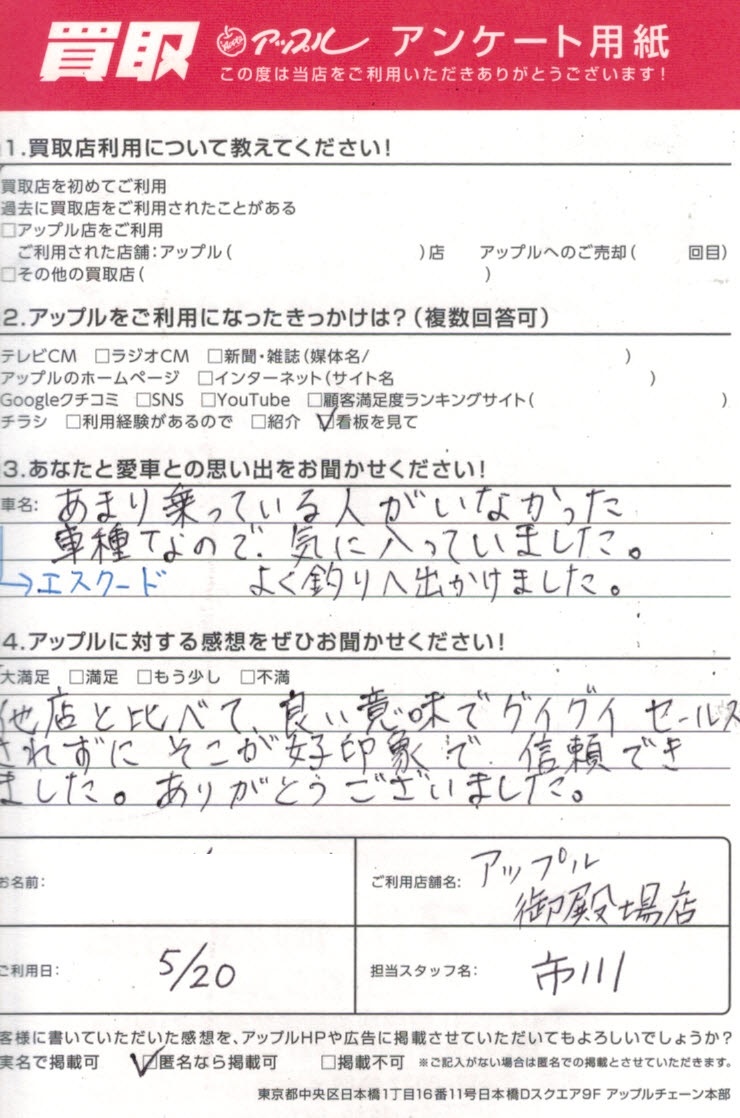 買取 アップル アンケート用紙
この度は当店をご利用いただきありがとうございます!
1.買取店利用について教えてください!
買取店を初めてご利用
過去に買取店をご利用されたことがある
□アップル店をご利用
ご利用された店舗:アップル( )店 アップルへのご売却( 回目)
□その他の買取店( )
2.アップルをご利用になったきっかけは?(複数回答可)
テレビCM □ラジオCM □新聞・雑誌(媒体名/ )
アップルのホームページ □インターネット(サイト名 )
Googleクチコミ □SNS □YouTube □顧客満足度ランキングサイト( )
チラシ □利用経験があるので □紹介 ☑看板を見て
3.あなたと愛車との思い出をお聞かせください!
車名: あまり乗っている人がいなかった
車種なので、気に入っていました。
→エスクード よく釣りへ出かけました。
4.アップルに対する感想をぜひお聞かせください!
大満足 □満足 □もう少し □不満
他店と比べて、良い意味でグイグイセールス
されずに そこが好印象で、信頼でき
ました。ありがとうございました。
お名前: ご利用店舗名: アップル
御殿場店
ご利用日: 5/20 担当スタッフ名: 市川
客様に書いていただいた感想を、アップルHPや広告に掲載させていただいてもよろしいでしょうか?
実名で掲載可 ☑匿名なら掲載可 □掲載不可 ※ご記入がない場合は匿名での掲載とさせていただきます。
東京都中央区日本橋1丁目16番11号日本橋Dスクエア9F アップルチェーン本部